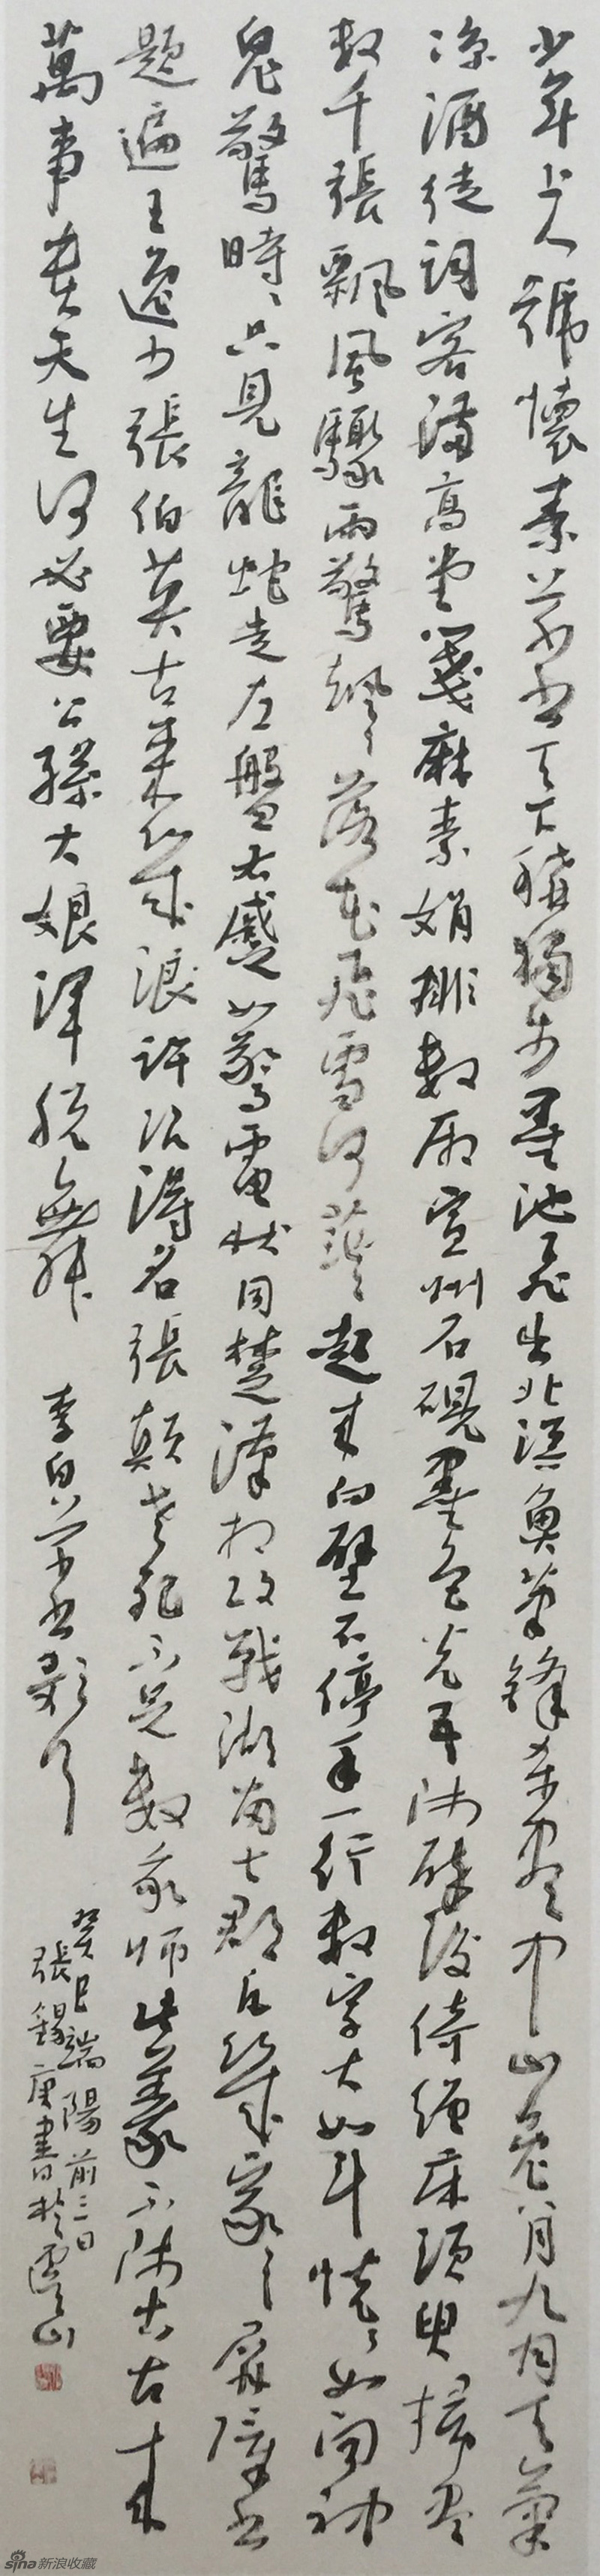 少年上人號懷素草書天下稱獨步墨池飛出北溟魚筆鋒殺盡中山兔八月九月天氣
涼酒徒詞客滿高堂箋麻素絹排數廂宣州石硯墨色光吾師醉後倚繩床須臾掃盡
數千張飄風驟雨驚颯颯落花飛雪何茫茫起來向壁不停手一行數字大如斗怳怳如聞神
鬼驚時時只見龍蛇走左盤右蹙如驚電狀同楚漢相攻戰湖南七郡凡幾家家家屏障書
題遍王逸少張伯英古來幾許浪得名張顛老死不足數我師此義不師古古來
萬事貴天生何必要公孫大娘渾脫舞 李白草書歌行
癸巳端陽前三日
張錫庚書於虞山
sina新浪收藏